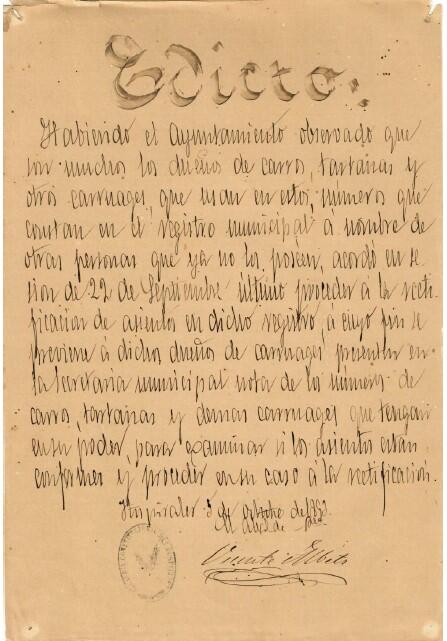 Edicto.
Habiendo el Ayuntamiento observado que
son muchos los dueños de carros, tartanas y
otros carruages, que usan en estos, números que
constan en el registro municipal á nombre de
otras personas que ya no los poseen, acordó en se-
sion de 22 de Septiembre último proceder á la recti-
ficacion de asientos en dicho registro, á cuyo fin se
previene á dichos dueños de carruages presenten en
la Secretaria municipal nota de los números de
carros, tartanas y demas carruages que tengan
en su poder, para examinar si los asientos están
conformes y proceder en su caso á la rectificacion.
5 de Octubre de
El
Vicente